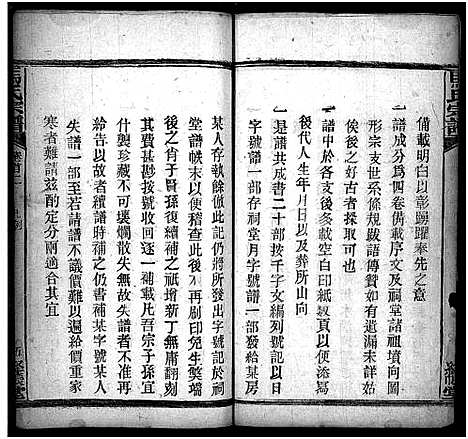 備載明白以彰踴躍奉先之意
一譜成分為四卷備載序文及祠堂諸祖墳圖
形宗支世系條規跋語傳贊如有遺漏未載者
俟後之好古者採之
一譜每房之後各多載空白印紙數頁以便添寫
後代人生年月日以及葬所山向
一譜共成書二十部按千字文編列號記以日
字號譜一部存祠堂月字號譜一部發給某房
某人存執餘倣此記仍將所發出字號記於祠
堂譜帙末以便稽查此後不再刷印免生獘端
後之肖子賢孫復續補之祇增新丁無庸翻刻
其費甚尠按次收回逐一補載片吾宗子孫宜
什襲珍藏不可壞爛散失無故失譜者不補
給若以故者續譜時補之仍書補某字號某人
失譜一部至若請譜不議價難以遍給價重家
寒者難請茲酌定分兩適合其宜
氏宗譜
卷首